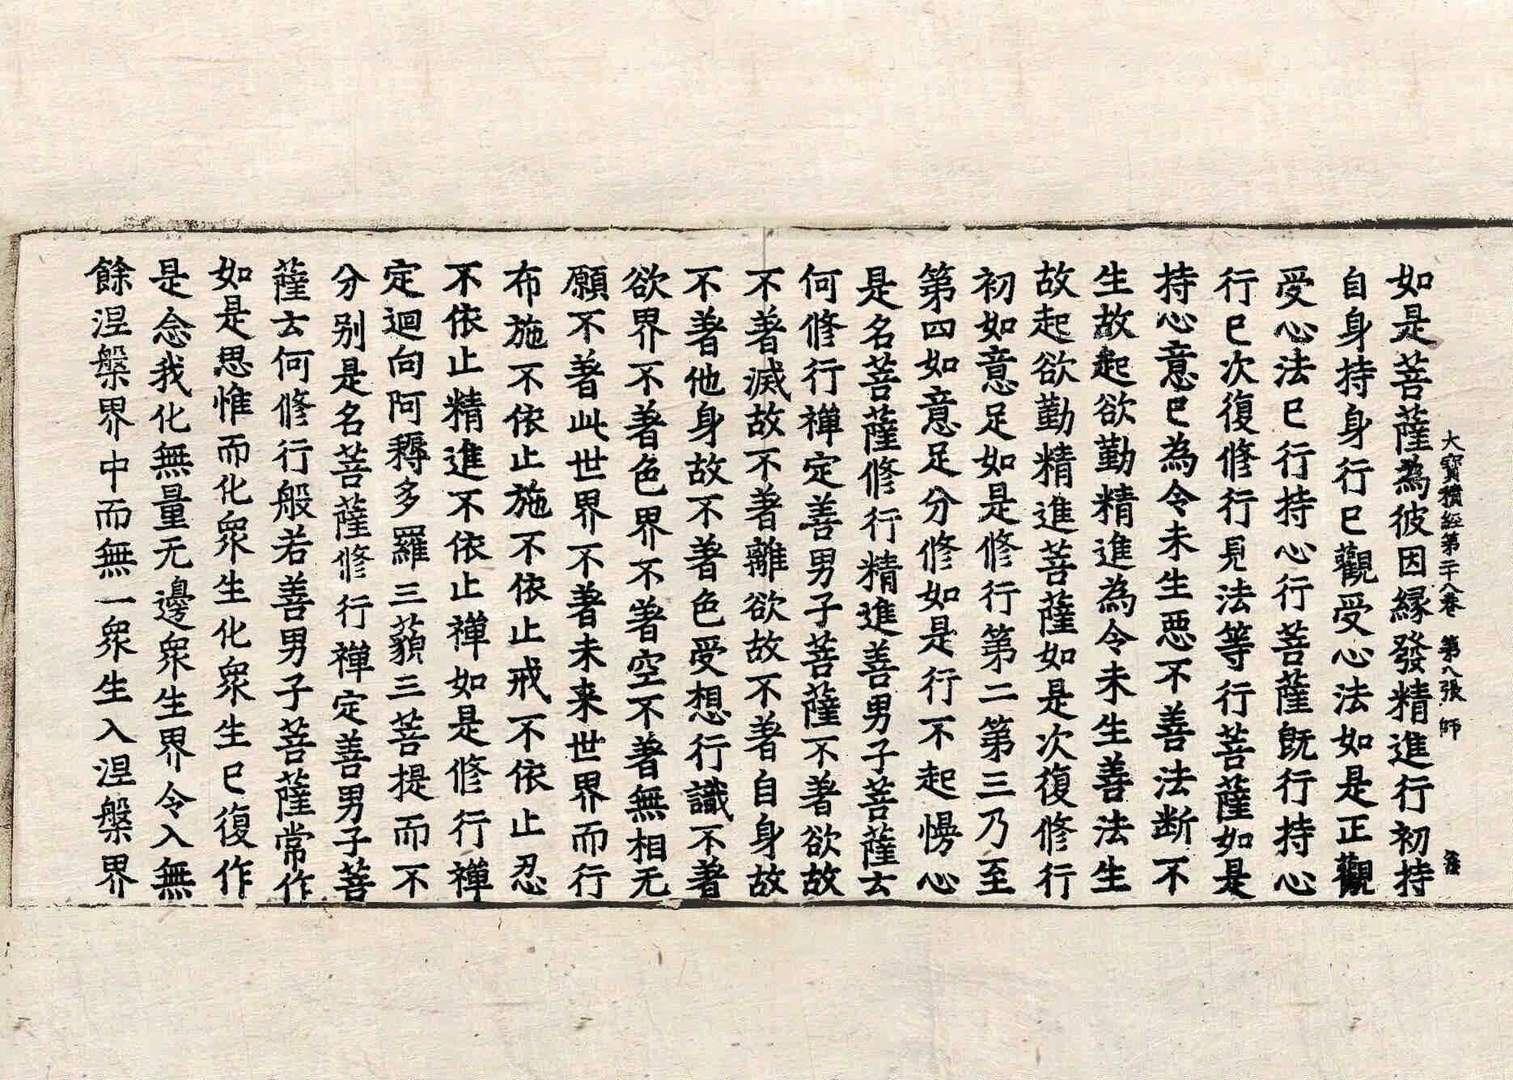 大寶積經第二十八卷 第八張 師
如是菩薩為彼因緣發精進行初持
自身持身行已觀受心法如是正觀
受心法已行持心行菩薩既行持心
行已次復修行見法等行菩薩如是
持心意已為令未生惡不善法断不
生故起欲勤精進為令未生善法生
故起欲勤精進菩薩如是次復修行
初如意足如是修行第二第三乃至
第四如意足分修如是行不起慢心
是名菩薩修行精進善男子菩薩云
何修行禅定善男子菩薩不著欲故
不著滅故不著離欲故不著自身故
不著他身故不著色受想行識不著
欲界不著色界不著空不著無相无
願不著此世界不著未来世界而行
布施不依止施不依止戒不依止忍
不依止精進不依止禅如是修行禅
定迴向阿耨多羅三藐三菩提而不
分别是名菩薩修行禅定善男子菩
薩云何修行般若善男子菩薩常作
如是思惟而化衆生化衆生已復作
是念我化無量无邊衆生界令入無
餘涅槃界中而無一衆生入涅槃界